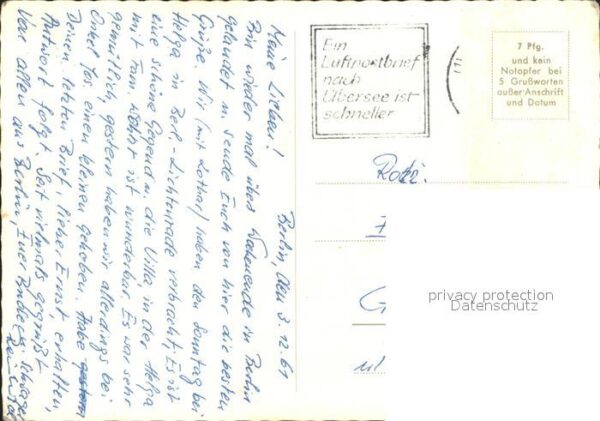 Berlin, den 3.12.61
Meine Lieben!
Bin wieder mal übers Wochenende in Berlin
gelandet u. sende Euch von hier die besten
Grüße. Wir (mit Lothar) haben den Sonntag bei
Helga in Berl.-Lichtenrade verbracht. Es ist
eine schöne Gegend u. die Villa, in der Helga
mit Fam. wohnt ist wunderbar. Es war sehr
gemütlich, gestern haben wir allerdings bei
Onkel für einen kleinen gehoben. Habe gestern
Deinen letzten Brief, lieber Ernst, erhalten,
Antwort folgt. Seit vielmals gegrüßt
Von allen aus Berlin, Euer Schwager
Ein
Luftpostbrief
nach
Übersee ist
schneller
7 Pfg.
und kein
Notopfer bei
5 Grußworten
außer Anschrift
und Datum
privacy protection
Datenschutz